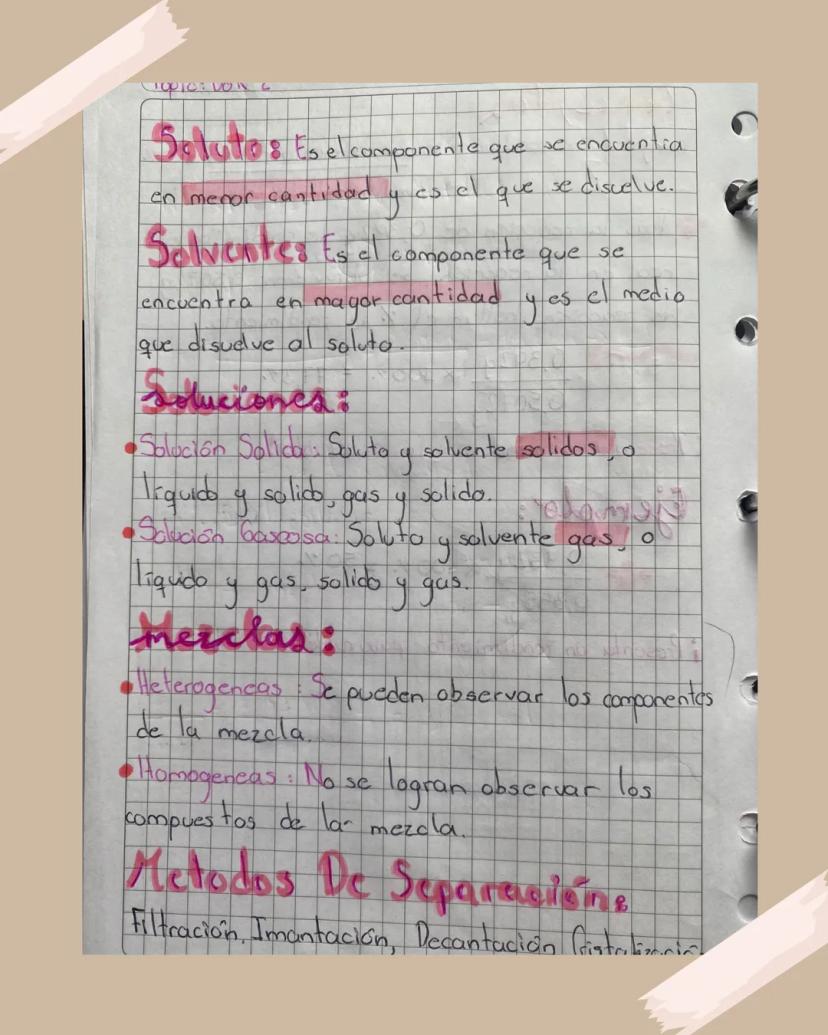 Soluto: Es el componente que se encuentra
en menor cantidad y es el que se disuelve.
Solvente: Es el componente que se
encuentra en mayor cantidad y es el medio
que disuelve al soluto.
Soluciones:
Solución Solida: Soluto y solvente solidos, o
líquido y solido, gas y solido.
Solución Gaseosa: Soluto y solvente gas, o
líquido y gas, solido y gas.
Mezclas:
Heterogeneas: Se pueden observar los componentes
de la mezcla.
Homogeneas: No se logran observar los
compuestos de la mezcla.
Metodos De Separación:
Filtración, Imantación, Decantación